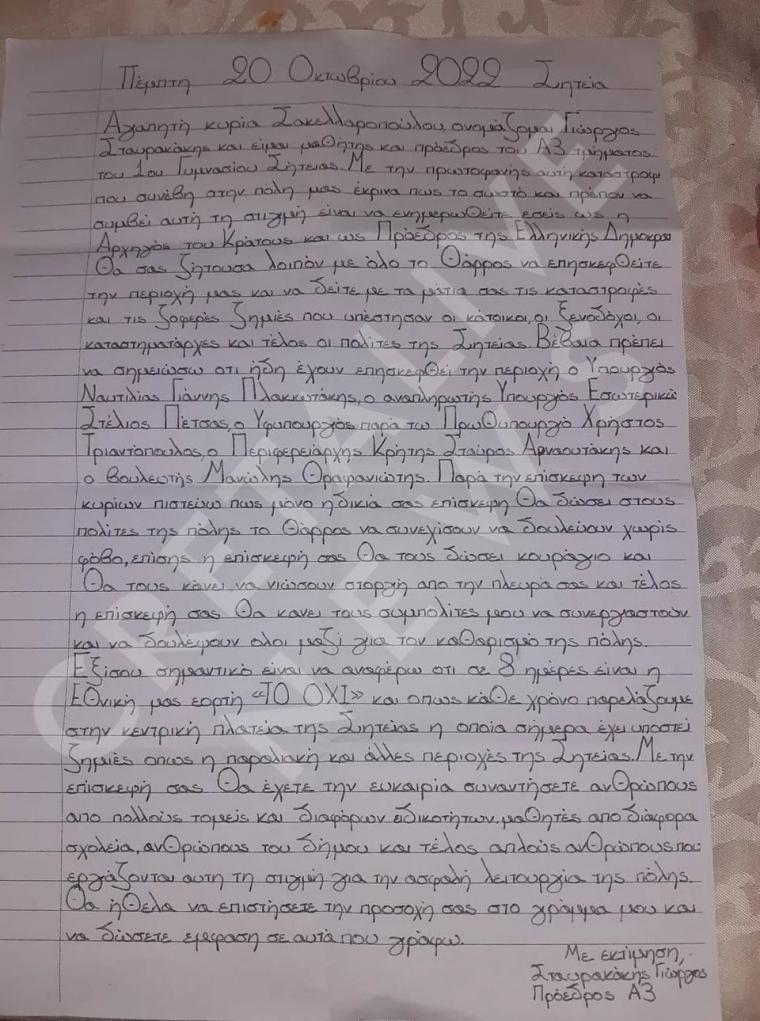 Πέμπτη 20 Οκτωβρίου 2022 Σητεία
Αγαπητή κυρία Σακελλαροπούλου, ονομάζομαι Γιώργος
Σταυρακάκης και είμαι μαθητής και πρόεδρος του Α3 τμήματος
του 1ου Γυμνασίου Σητείας. Με την πρωτοφανής αυτή καταστροφή
που συνέβη στην πόλη μας έκρινα πως το σωστό και πρέπον να
συμβεί αυτή τη στιγμή είναι να ενημερωθείτε εσείς ως η
Αρχηγός του Κράτους και ως Πρόεδρος της Ελληνικής Δημοκρα
Θα σας ζήτουσα λοιπόν με όλο το Θάρρος να επησκεφθείτε
την περιοχή μας και να δείτε με τα μάτια σας τις καταστροφές
και τις ζοφερές ζημιές που υπέστησαν οι κάτοικοι, οι ξενοδόχοι, οι
καταστηματάρχες και τέλος οι πολίτες της Σητείας. Βέβαια πρέπει
να σημειώσω οτι ήδη έχουν επησκεφθεί την περιοχή ο Υπουργός
Ναυτιλίας Γιάννης Πλακιωτάκης, ο αναπληρωτής Υπουργός Εσωτερικώ
Στέλιος Πέτσας, ο Υφυπουργός παρά τω Πρωθυπουργό Χρήστος
Τριαντόπουλος, ο Περιφερειάρχης Κρήτης Σταύρος Αρναουτάκης και
ο βουλευτής Μανώλης Θραψανιώτης. Παρά την επίσκεψη των
κυρίων πιστεύω πως μόνο η δικιά σας επίσκεψη Θα δώσει στους
πολίτες της πόλης το Θάρρος να συνεχίσουν να δουλεύουν χωρίς
φόβο, επίσης η επίσκεψή σας Θα τους δώσει κουράγιο και
Θα τους κάνει να νιώσουν στοργή απο την πλευρά σας και τέλος
η επίσκεψή σας Θα κανει τους συμπολίτες μου να συνεργαστούν
και να δουλέψουν ολοι μαζί για τον καθαρισμό της πόλης.
Εξίσου σημαντικό είναι να αναφέρω οτι σε 8 ημέρες είναι η
Εθνική μας εορτή «ΤΟ ΟΧΙ» και οπως κάθε χρόνο παρελάζουμε
στην κεντρική πλατεία της Σητείας η οποία σήμερα έχει υποστεί
ζημιές οπως η παραλιακή και άλλες περιοχές της Σητείας. Με την
επίσκεψή σας Θα έχετε την ευκαιρία συναντήσετε ανθρώπους
απο πολλούς τομείς και διαφόρων ειδικοτήτων. μαθητές απο διάφορα
σχολεία, ανθρώπους του δήμου και τέλος απλούς ανθρώπους που
εργάζονται αυτη τη στιγμή για την ασφαλή λειτουργία της πόλης.
Θα ήθελα να επιστήσετε την προσοχή σας στο γράμμα μου και
να δώσετε εμφαση σε αυτά που γράφω.
Με εκτίμηση,
Σταυρακάκης Γιώργος
Πρόεδρος Α3
CRETALIVE
NEWS